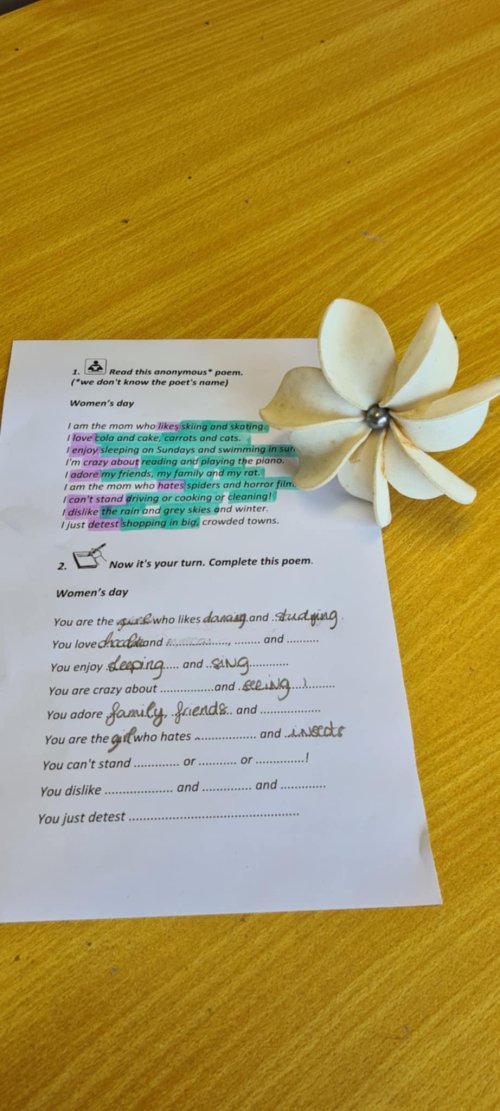 1. Read this anonymous* poem.
(*we don't know the poet's name)
Women's day
I am the mom who likes skiing and skating.
I love cola and cake, carrots and cats.
I enjoy sleeping on Sundays and swimming in
I'm crazy about reading and playing the piano.
I adore my friends, my family and my rat.
I am the mom who hates spiders and horror
I can't stand driving or cooking or cleaning!
I dislike the rain and grey skies and winter.
I just detest shopping in big, crowded towns.
2. Now it's your turn. Complete this poem.
Women's day
You are the girl who likes dancing and studying.
You love and ............, ........ and .........
You enjoy sleeping .... and ..sing............
You are crazy about ...............and seeing ).........
You adore family, friends.. and .................
You are the girl who hates .................. and ..insects
You can't stand ............. or ........... or ............!
You dislike .................... and .............. and .............
You just detest ..................................................